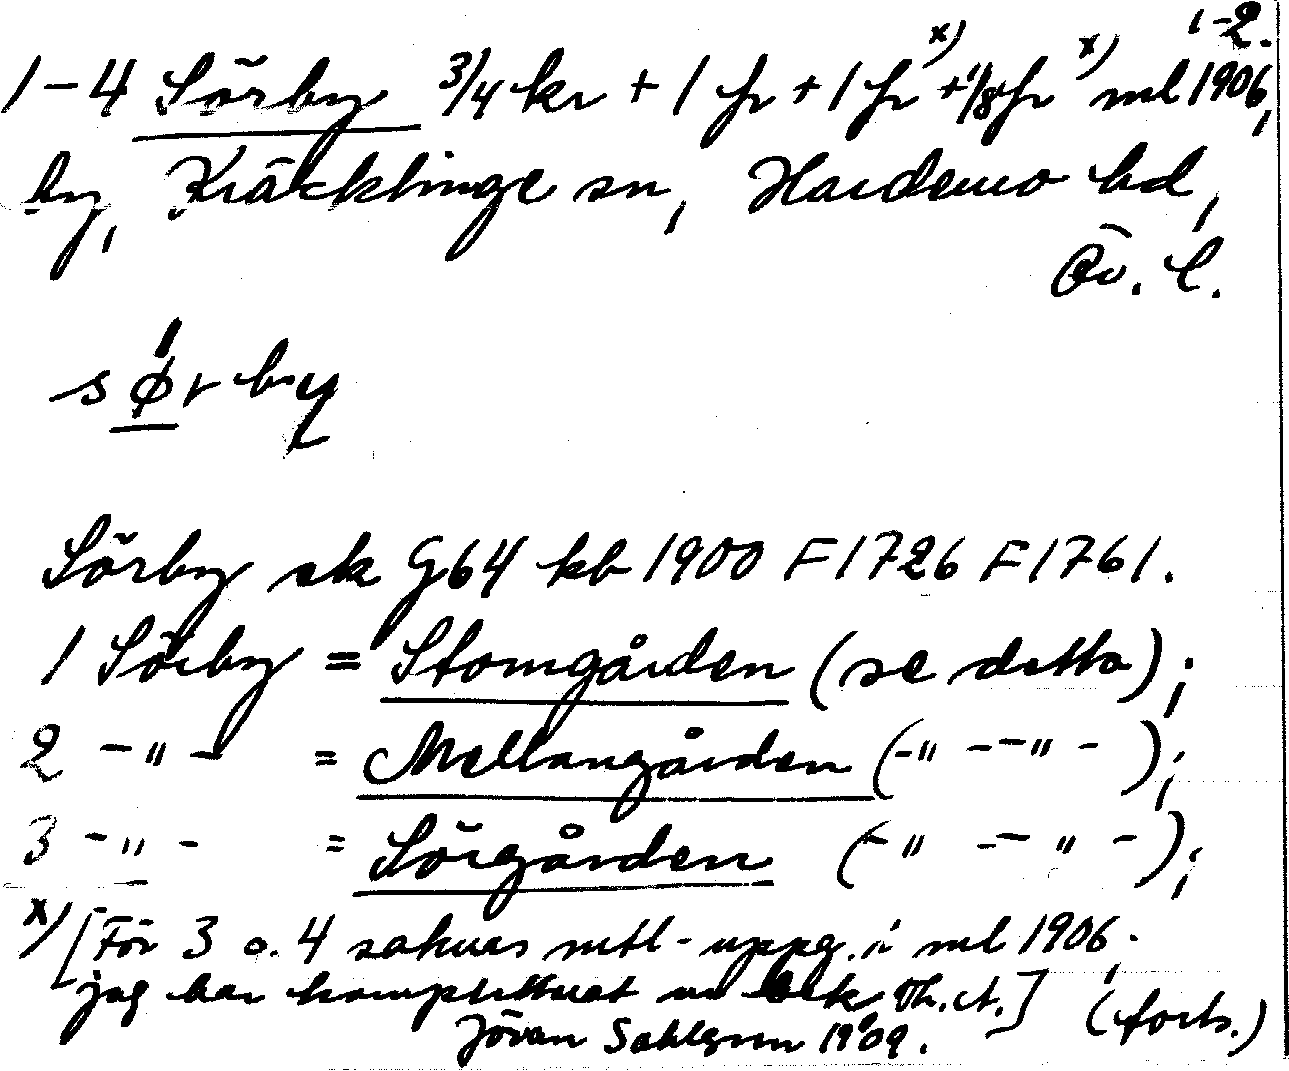 1-2.
1-4 Sörby 3/4 kr + 1 fr x) + 1/8 fr x) ml 1906,
by, Kräcklinge sn, Hardemo hd,
Ör. l.
sørby
Sörby sk G64 kb 1900 F1726 F1761.
1 Sörby = Stomgården (se detta);
2 -"- = Mellangården (-" --" -);
3 -"- = Sörgården (-" --" -);
x) [För 3 o. 4 saknas mtl-uppg. i ml 1906,
jag har kompletterat ur Th. ct.] (forts.)
Jöran Sahlgren 1909.